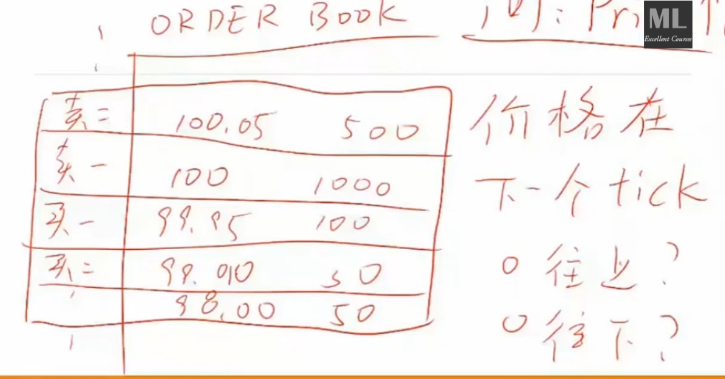 ORDER BOOK
问: Pri
ML
Excellent Course
卖二 100.05 500
卖一 100 1000
买一 99.95 100
买二 99.90 50
98.00 50
价格在
下一个tick
往上?
往下?